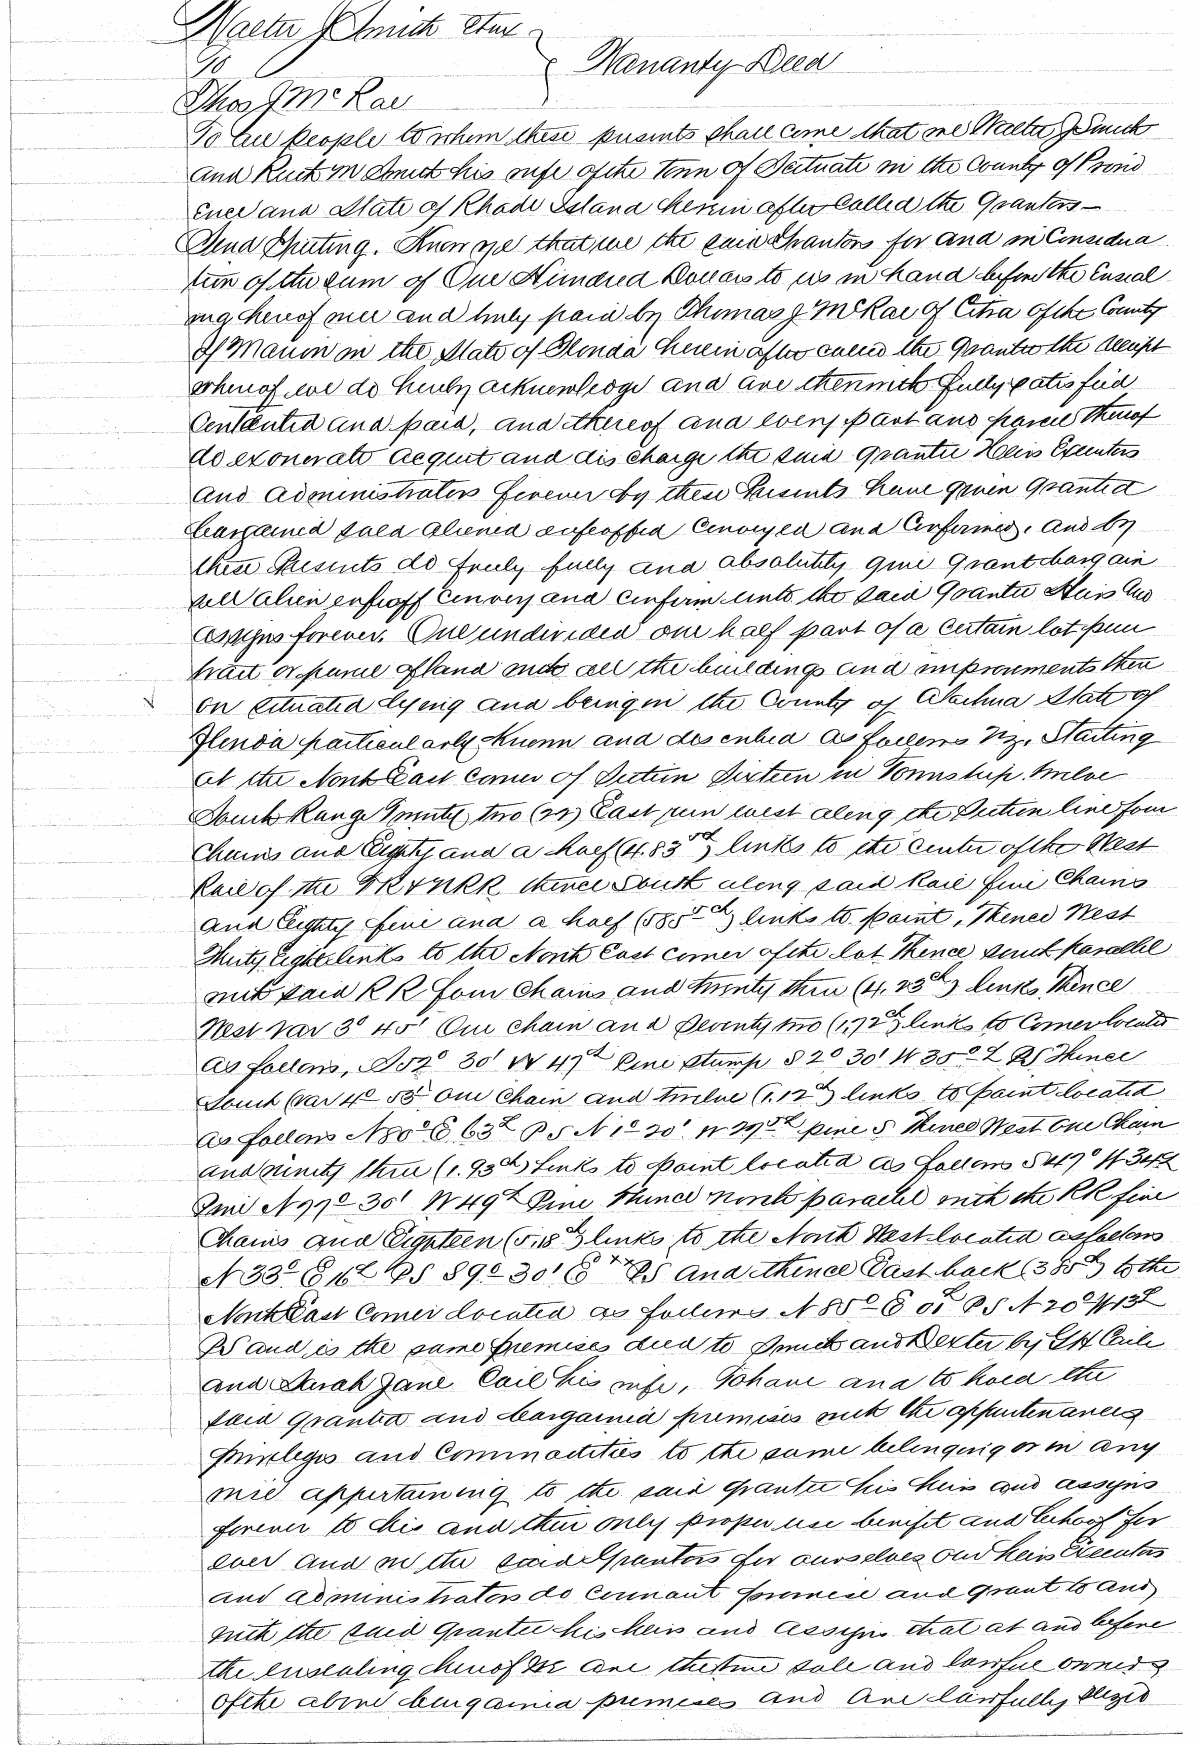 Walter J Smith etux
To
Warranty Deed
Thos J McRae
To all people to whom these presents shall come that we Walter J Smith
and Ruth M Smith his wife of the Town of Scituate in the County of Provid
ence and State of Rhode Island herein after called the Grantors—
Send Greeting. Know ye that we the said Grantors for and in Considera
tion of the sum of One Hundred Dollars to us in hand before the Enseal
ing hereof well and truly paid by Thomas J McRae of Citra of the County
of Marion in the State of Florida herein after called the Grantee the receipt
whereof we do hereby acknowledge and are therewith fully satisfied
Contented and paid, and thereof and every part and parcel thereof
do exonerate acquit and discharge the said grantee Heirs Executors
and administrators forever by these Presents have given granted
bargained sold aliened enfeoffed Conveyed and Confirmed, and by
these Presents do freely fully and absolutely give Grant bargain
sell alien enfeoff Convey and confirm unto the said Grantee Heirs and
assigns forever. One undivided one half part of a certain lot piece
tract or parcel of land with all the buildings and improvements there
on situated lying and being in the County of Alachua State of
Florida particularly Known and described as follows Viz. Starting
at the North East Corner of Section Sixteen in Township twelve
South Range Twenty two (22) East run west along the Section line four
Chains and Eighty and a half (4.83 ) links to the center of the West
Rail of the RR thence South along said Rail five Chains
and Eighty five and a half (585 ) links to point, Thence West
Thirty Eight links to the North East corner of the lot Thence South Parallel
with said RR four Chains and twenty three (4.23ch) links Thence
West var 3° 45' One chain and Seventy two (1.72ch) links to Corner located
as follows, S52° 30' W 47L Pine Stump S 2° 30' W 35 L PS Thence
South (var 4° 55' One Chain and twelve (1.12ch) links to point located
as follows N80° E 63L PS N 1° 20' W 29 L pine S Thence West One Chain
and ninety three (1.93ch) links to point located as follows S 47° W 34L
Pine N77° 30' W 49L Pine Thence North parallel with the RR five
Chains and Eighteen (5.18ch) links to the North West located as follows
N 33° E 16L PS S 9° 30' E PS and thence East back (385L) to the
North East Corner located as follows N 85° E PS N 20° W 13L
PS and is the same premises deed to Smith and Dexter by G H Cail
and Sarah Jane Cail his wife, To have and to hold the
said granted and bargained premises with the appurtenances
privileges and Commodities to the same belonging or in any
wise appertaining to the said grantee his heirs and assigns
forever to his and their only proper use benefit and behoof for
ever and we the said Grantors for ourselves our heirs Executors
and administrators do covenant promise and grant to and
with the said grantee his heirs and assigns that at and before
the ensealing hereof We are the true sole and lawful owners
of the above bargained premises and are lawfully seized